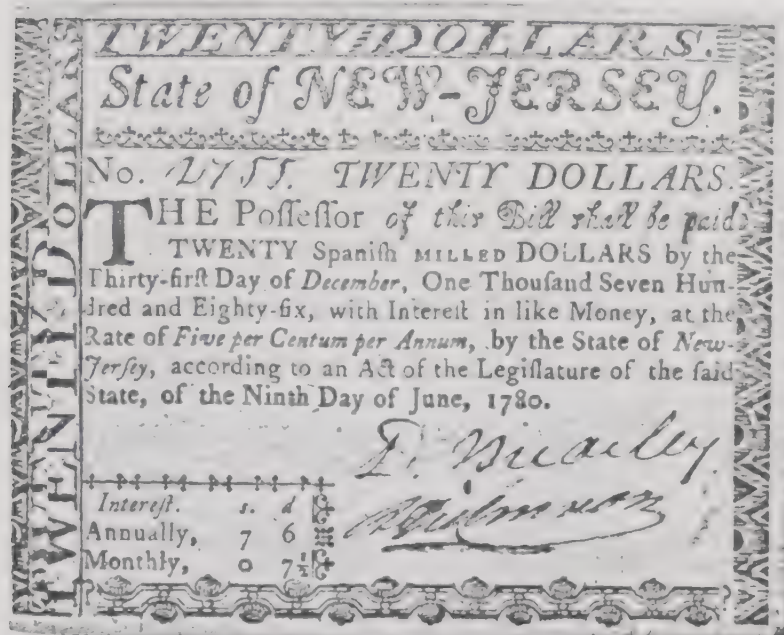 TWENTY DOLLARS.
State of NEW-JERSEY.
No. 2755. TWENTY DOLLARS.
THE Poſſeſſor of this Bill ſhall be paid
TWENTY Spaniſh MILLED DOLLARS by the
Thirty-firſt Day of December, One Thouſand Seven Hun-
dred and Eighty-ſix, with Intereſt in like Money, at the
Rate of Five per Centum per Annum, by the State of New-
Jerſey, according to an Act of the Legiſlature of the ſaid
State, of the Ninth Day of June, 1780.
D. Brearley
Intereſt. s. d
Annually, 7 6
Monthly, 0 7½
TWENTY DOLLARS